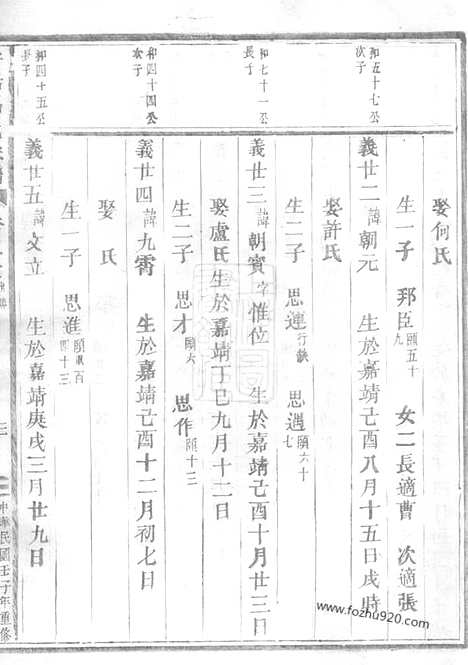 娶何氏
生一子 邦臣願五十九 女二長適曹 次適張
和五十七公次子
義廿二諱朝元 生於嘉靖己酉八月十五日戌時
娶許氏
生二子 思運行缺 思遇願六十七
和七十一公長子
義廿三諱朝賓字惟位 生於嘉靖己酉十月廿三日
娶盧氏生於嘉靖丁巳九月十二日
生二子 思才願六 思作願十三
和四十四公次子
義廿四諱九霄 生於嘉靖己酉十二月初七日
娶 氏
生一子 思進願貳百四十三
和四十五公長子
義廿五諱文立 生於嘉靖庚戌三月廿九日
中華民國壬子年重修
www.fozhu920.com